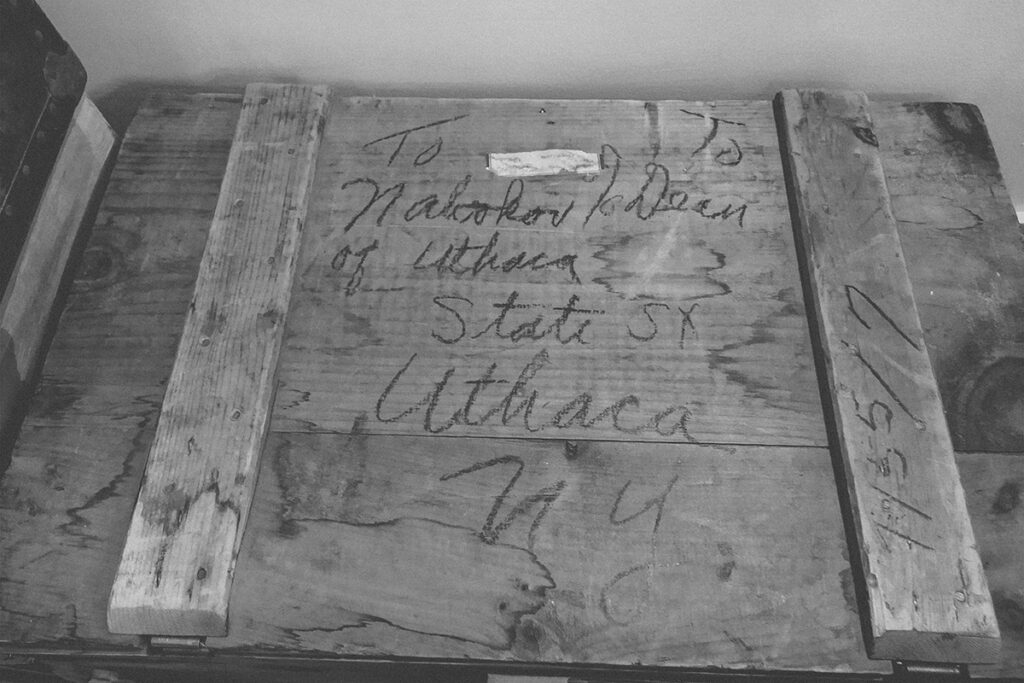 To To
Nabokov % Dean
of Ithaca
State St
Ithaca
N Y